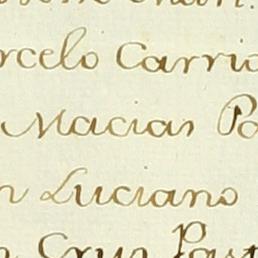 rcelo Carrio
Macias Pa
n Luciano
Cruz Past